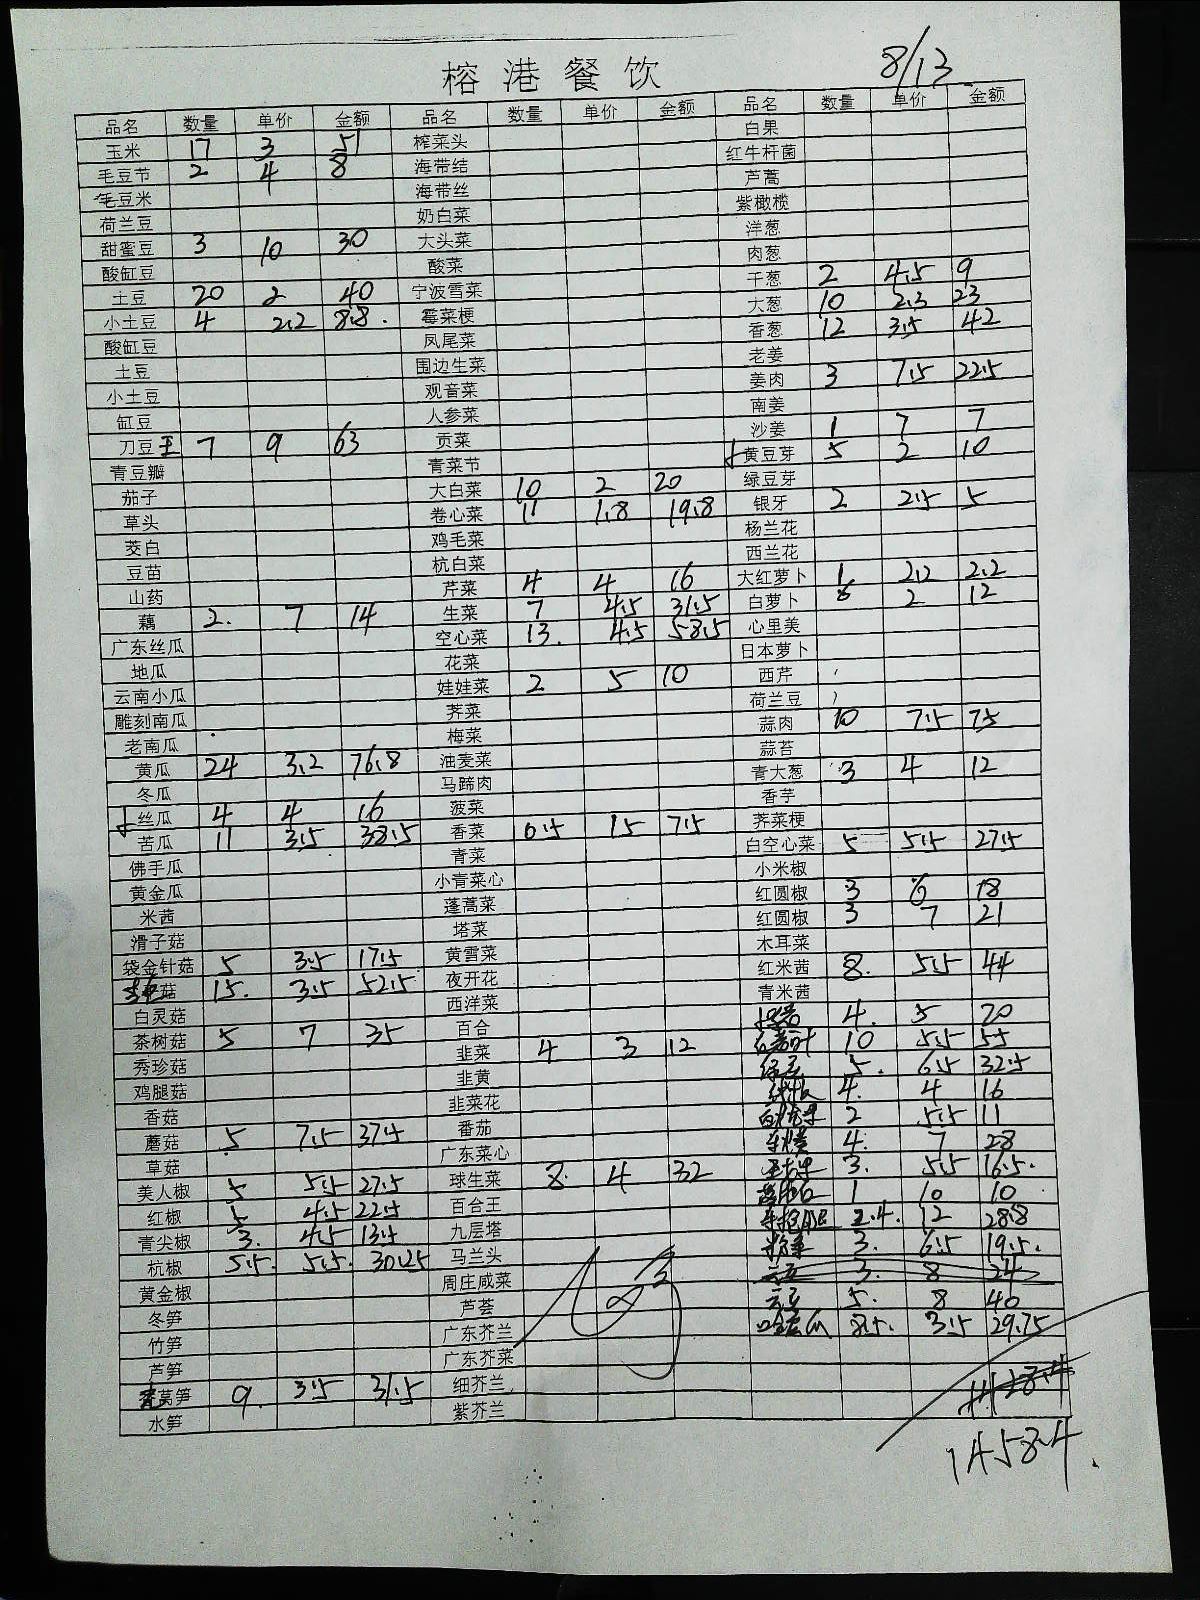 榕港餐饮
8/13
品名 数量 单价 金额 品名 数量 单价 金额 品名 数量 单价 金额
玉米 17 3 51 榨菜头 白果
毛豆节 2 4 8 海带结 红牛杆菌
毛豆米 海带丝 芦蒿
荷兰豆 奶白菜 紫橄榄
甜蜜豆 3 10 30 大头菜 洋葱
酸缸豆 酸菜 肉葱
土豆 20 2 40 宁波雪菜 干葱 2 4.5 9
小土豆 4 2.2 8.8. 霉菜梗 大葱 10 2.3 23
酸缸豆 凤尾菜 香葱 12 3.5 42
土豆 围边生菜 老姜
小土豆 观音菜 姜肉 3 7.5 22.5
缸豆 人参菜 南姜
刀豆王 7 9 63 贡菜 沙姜 1 7 7
青豆瓣 青菜节 黄豆芽 5 2 10
茄子 大白菜 10 2 20 绿豆芽
草头 卷心菜 11 1.8 19.8 银牙 2 2.5 5
茭白 鸡毛菜 杨兰花
豆苗 杭白菜 西兰花
山药 芹菜 4 4 16 大红萝卜 1 2.2 2.2
藕 2. 7 14 生菜 7 4.5 31.5 白萝卜 6 2 12
广东丝瓜 空心菜 13. 4.5 58.5 心里美
地瓜 花菜 日本萝卜
云南小瓜 娃娃菜 2 5 10 西芹
雕刻南瓜 荠菜 荷兰豆
老南瓜 梅菜 蒜肉 10 7.5 75
黄瓜 24 3.2 76.8 油麦菜 蒜苔
冬瓜 马蹄肉 青大葱 3 4 12
丝瓜 4 4 16 菠菜 香芋
苦瓜 11 3.5 38.5 香菜 0.5 15 7.5 荠菜梗
佛手瓜 青菜 白空心菜 5 5.5 27.5
黄金瓜 小青菜心 小米椒
米茜 蓬蒿菜 红圆椒 3 6 18
滑子菇 塔菜 红圆椒 3 7 21
袋金针菇 5 3.5 17.5 黄雪菜 木耳菜
菇 15. 3.5 52.5 夜开花 红米茜 8. 5.5 44
白灵菇 西洋菜 青米茜
茶树菇 5 7 35 百合 4. 5 20
秀珍菇 韭菜 4 3 12 10 5.5 55
鸡腿菇 韭黄 5. 6.5 32.5
香菇 韭菜花 4. 4 16
蘑菇 5 7.5 37.5 番茄 2 5.5 11
草菇 广东菜心 4. 7 28
美人椒 5 5.5 27.5 球生菜 8. 4 32 3. 5.5 16.5.
红椒 5 4.5 22.5 百合王 1 10 10
青尖椒 3. 4.5 13.5 九层塔 2.4. 12 28.8
杭椒 5.5. 5.5. 30.25 马兰头 3. 6.5 19.5.
黄金椒 周庄咸菜 云豆 3. 8 24
冬笋 芦荟 云豆 5. 8 40
竹笋 广东芥兰 瓜 8.5. 3.5 29.75
芦笋 广东芥菜
莴笋 9. 3.5 31.5 细芥兰
水笋 紫芥兰
1458.4.